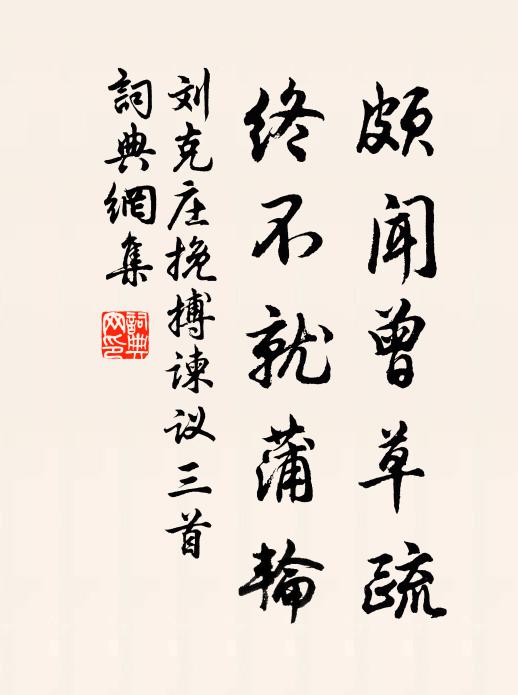 頗闻曾草疏
终不就蒲輪
刘克庄挽搏谏议三首
詞典網集
詞典网印